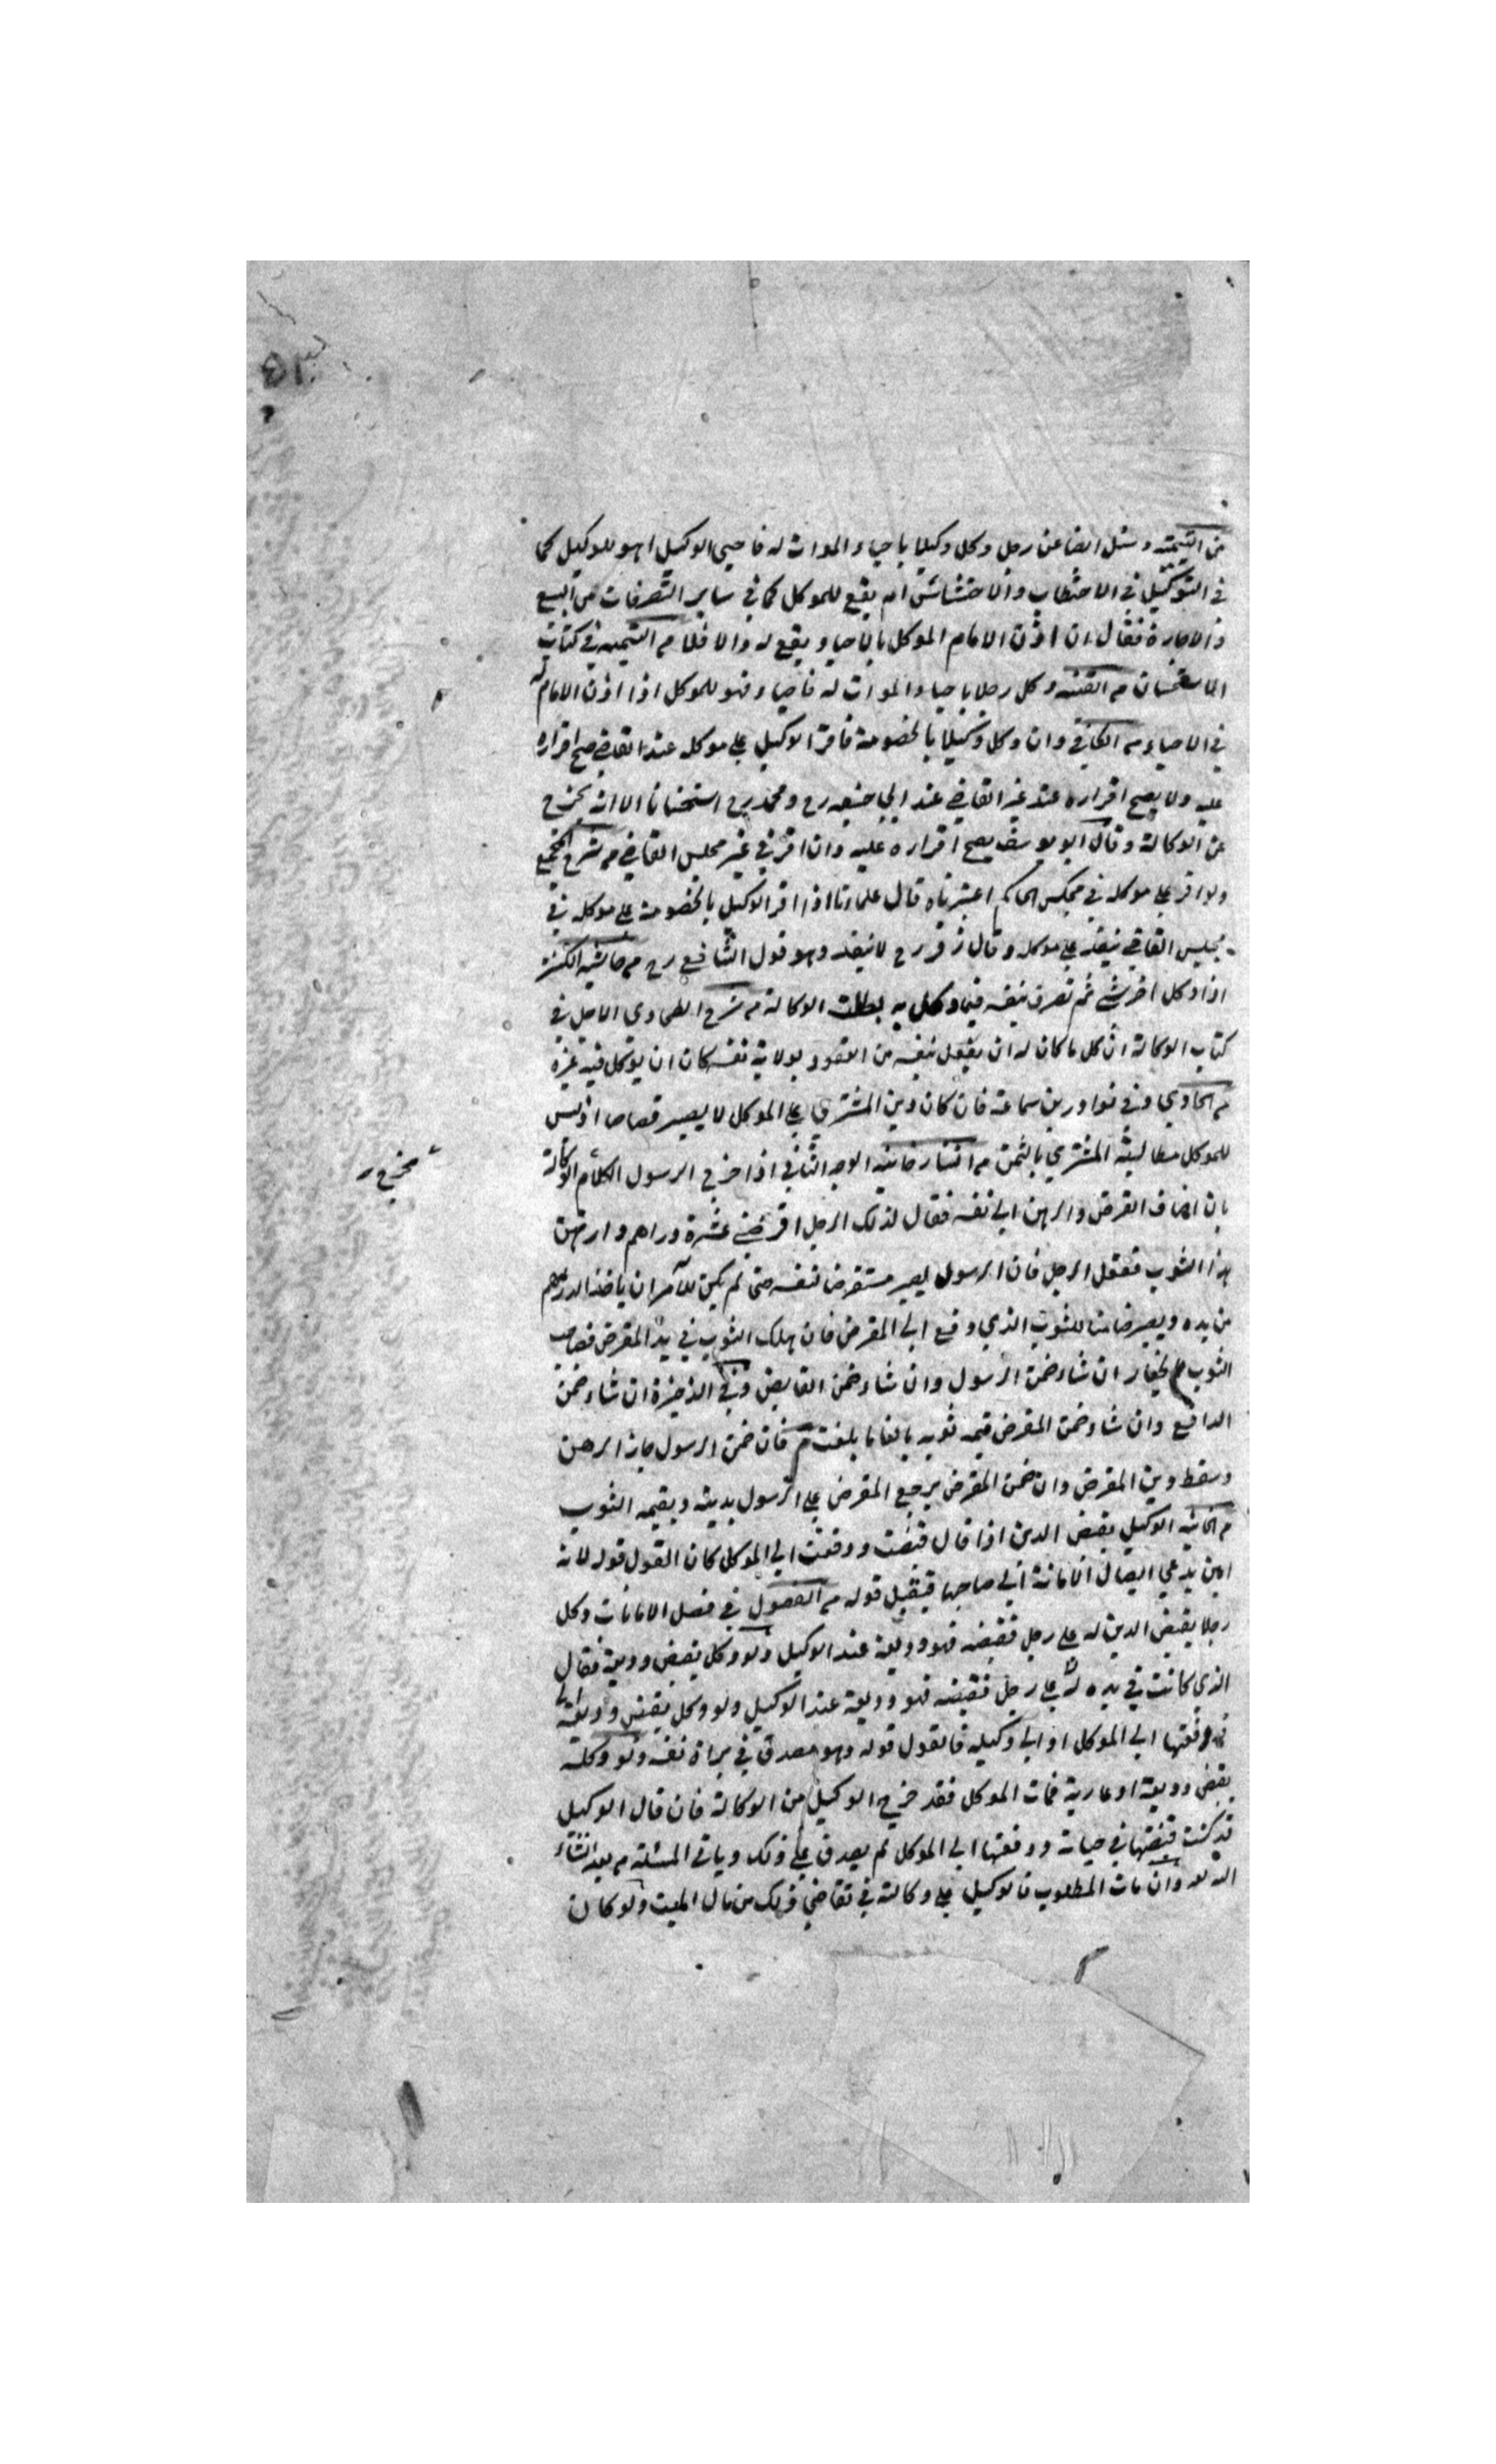 من اليتيمة وسئل ايضا عن رجل وكل وكيلا باحياء الموات له فاحيى الوكيل اهو للوكيل كما
في التوكيل في الاحتطاب والاحتشاش ام يقع للموكل كما في ساير التصرفات من البيع
والاجارة فقال ان اذن الامام الموكل بالاحياء يقع له والا فلا م اليتيمه في كتاب
الاستحسان م القنيه وكل رجلا باحياء الموات له فاحياه فهو للموكل اذا اذن الامام له
في الاحياء م الكافي وان وكل وكيلا بالخصومة فاقر الوكيل على موكله عند القاضي صح اقراره
عليه ولا يصح اقراره عند غير القاضي عند ابي حنيفه رح ومحمد رح استحسانا الا انه يخرج
عن الوكالة وقال ابو يوسف يصح اقراره عليه وان اقر في غير مجلس القاضي م شرح المجمع
ولو اقر على موكله في مجلس الحاكم اعتبرناه قال علماؤنا اذا اقر الوكيل بالخصومة على موكله في
مجلس القاضي ينفذ على موكله وقال زفر رح لا ينفذ وهو قول الشافعي رح م حاشيه الكنز
اذا وكل اخر بشئ ثم تصرف بنفسه فيما وكل به بطلت الوكالة م شرح الطحاوي الاصل في
كتاب الوكالة ان كل ما كان له ان يفعل بنفسه من العقود بولاية نفسه كان ان يوكل فيه غيره
م الحاوي وفي نوادر بن سماعة فان كان دين المشتري على الموكل لا يصير قصاصا اذ ليس
للموكل مطالبة المشتري بالثمن م التتارخانيه الوجه الثاني اذا اخرج الرسول الكلام الوكالة
مخرج
بان اضاف القرض والرهن الى نفسه فقال لذلك الرجل اقرضني عشرة دراهم وارتهن
هذا الثوب ففعل الرجل فان الرسول يصير مستقرضا لنفسه حتى لم يكن للآمر ان ياخذ الدراهم
من يده ويصير ضامنا للثوب الذي دفع الى المقرض فان هلك الثوب في يد المقرض فصاحب
الثوب بالخيار ان شاء ضمن الرسول وان شاء ضمن القابض وفي الذخيرة ان شاء ضمن
الدافع وان شاء ضمن المقرض قيمه ثوبه بالغا ما بلغت م فان ضمن الرسول جاز الرهن
وسقط دين المقرض وان ضمن المقرض يرجع المقرض على الرسول بدينه وبقيمه الثوب
م الخانيه الوكيل بقبض الدين اذا قال قبضت ودفعت الى الموكل كان القول قوله لانه
امين يدعي ايصال الامانة الى صاحبها فيقبل قوله م الفصول في فصل الامانات وكل
رجلا بقبض الدين له على رجل فقبضه فهو وديعة عند الوكيل ولو وكل بقبض وديعة فقال
الذي كانت في يده له على رجل فقبضه فهو وديعة عند الوكيل ولو وكل بقبض وديعة
دفعتها الى الموكل او الى وكيله فالقول قوله وهو مصدق في براة نفسه ولو وكله
بقبض وديعة او عارية فمات الموكل فقد خرج الوكيل من الوكالة فان قال الوكيل
قد كنت قبضتها في حياته ودفعتها الى الموكل لم يصدق على ذلك وياتي المسئلة م بعد انشاء
الله تعالى وان مات المطلوب فالوكيل على وكالته في تقاضي ذلك من مال الميت ولو كان